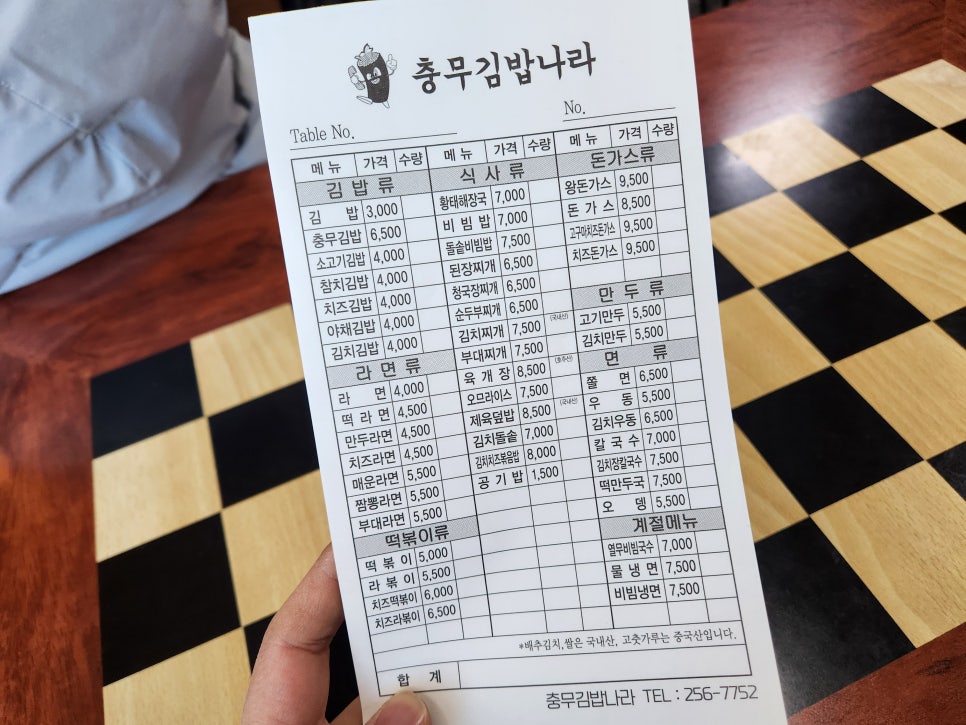 충무김밥나라
Table No.
No.
메 뉴 가격 수량
김 밥 류
김 밥 3,000
충무김밥 6,500
소고기김밥 4,000
참치김밥 4,000
치즈김밥 4,000
야채김밥 4,000
김치김밥 4,000
라 면 류
라 면 4,000
떡 라 면 4,500
만두라면 4,500
치즈라면 4,500
매운라면 5,500
짬뽕라면 5,500
부대라면 5,500
떡볶이류
떡 볶 이 5,000
라 볶 이 5,500
치즈떡볶이 6,000
치즈라볶이 6,500
메 뉴 가격 수량
식 사 류
황태해장국 7,000
비 빔 밥 7,000
돌솥비빔밥 7,500
된장찌개 6,500
청국장찌개 6,500
순두부찌개 6,500
김치찌개 7,500 (국내산)
부대찌개 7,500
육 개 장 8,500 (호주산)
오므라이스 7,500
제육덮밥 8,500 (국내산)
김치돌솥 7,000
김치치즈볶음밥 8,000
공 기 밥 1,500
메 뉴 가격 수량
돈가스류
왕돈가스 9,500
돈 가 스 8,500
고구마치즈돈가스 9,500
치즈돈가스 9,500
만 두 류
고기만두 5,500
김치만두 5,500
면 류
쫄 면 6,500
우 동 5,500
김치우동 6,500
칼 국 수 7,000
김치장칼국수 7,500
떡만두국 7,500
오 뎅 5,500
계절메뉴
열무비빔국수 7,000
물 냉 면 7,500
비빔냉면 7,500
*배추김치,쌀은 국내산, 고춧가루는 중국산입니다.
합 계
충무김밥나라 TEL : 256-7752